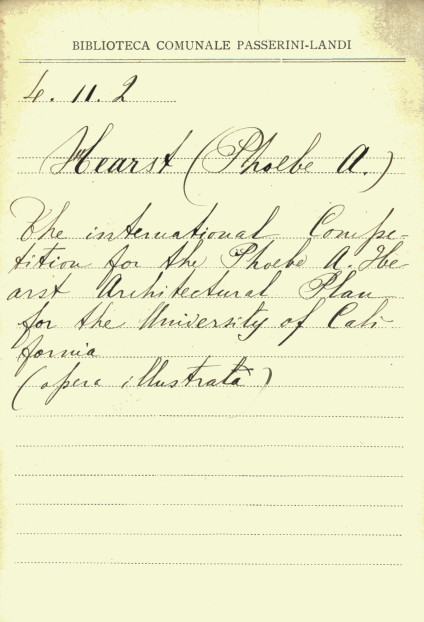 BIBLIOTECA COMUNALE PASSERINI-LANDI
4. 11. 2
Hearst (Phoebe A.)
The international Compe-
tition for the Phoebe A. He
arst Architectural Plan
for the University of Cali-
fornia
(opera illustrata)